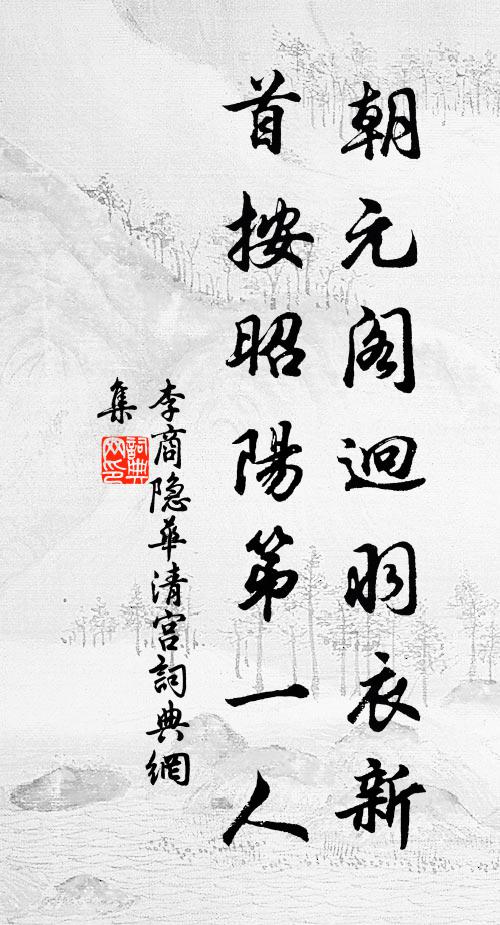 朝元阁迥羽衣新
首按昭陽第一人
李商隐華清宫詞典網
集
詞典网印